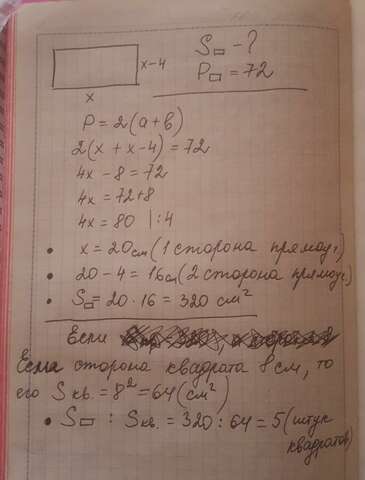 x-4
x
S▭ - ?
P▭ = 72
P = 2(a+b)
2(x + x-4) = 72
4x - 8 = 72
4x = 72+8
4x = 80 |:4
• x = 20см (1 сторона прямоуг)
• 20 - 4 = 16см (2 сторона прямоуг)
• S▭ = 20 · 16 = 320 см²
Если
Если сторона квадрата 8 см, то
его S кв. = 8² = 64 (см²)
• S▭ : S кв. = 320 : 64 = 5 (штук
квадратов)